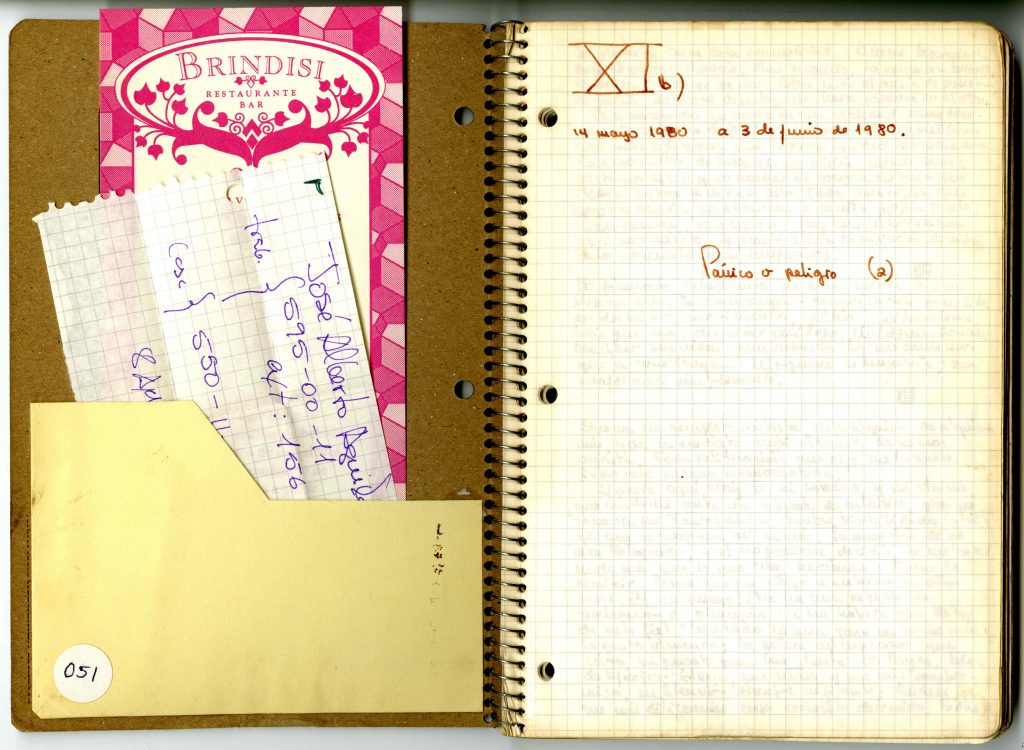 BRINDISI
RESTAURANTE
BAR
José Alberto
trab. } 595-00-11
a/t: 156
Casa } 550-11
051
XI b)
14 mayo 1980 a 3 de junio de 1980.
Pánico o peligro (2)